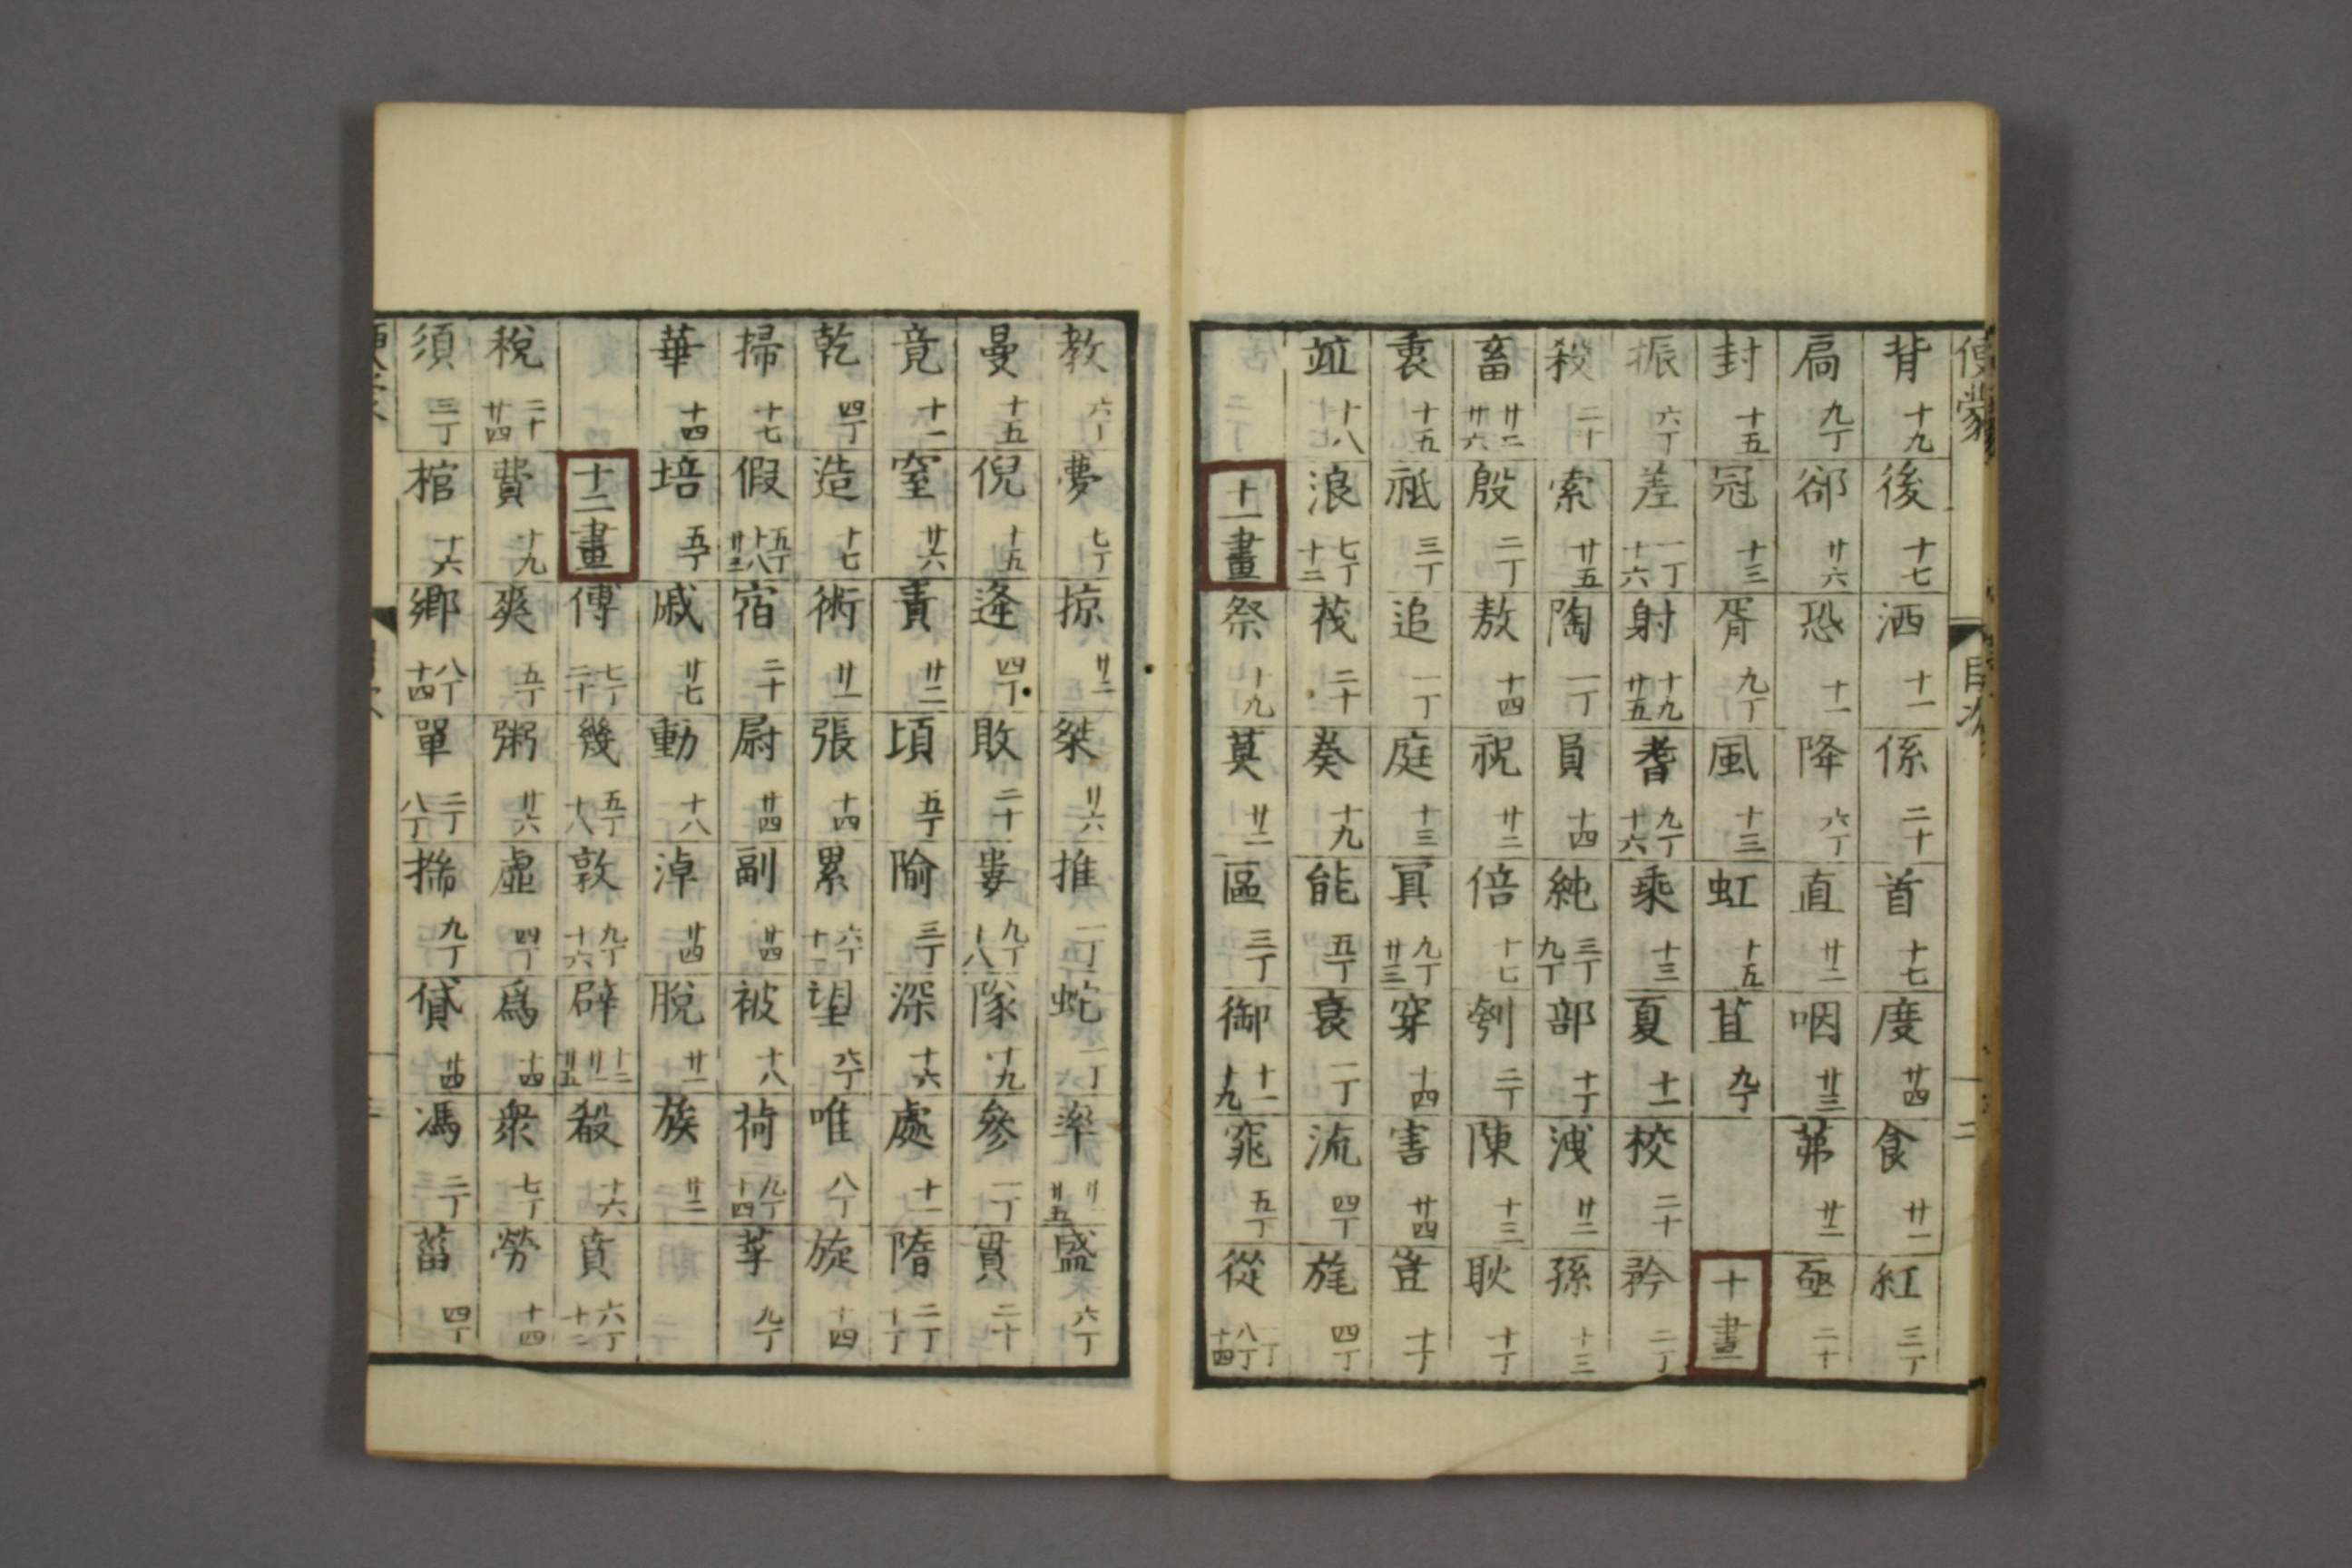 便蒙 目次 二
背 十九 後 十七 洒 十一 係 二十 首 十七 度 廿四 食 廿一 紅 三丁
扁 九丁 郤 廿六 恐 十一 降 六丁 直 廿二 咽 廿三 茀 廿二 亟 二十
封 十五 冠 十三 胥 九丁 風 十三 虹 十五 苴 九丁 十畫
振 六丁 差 一丁 十六 射 十九 廿五 耆 九丁 十六 乘 十三 夏 十一 校 二十 矜 二丁
殺 二十 索 廿五 陶 一丁 員 十四 純 三丁 九丁 部 十丁 洩 廿二 孫 十三
畜 廿二 廿六 殷 二丁 敖 十四 祝 廿二 倍 十七 刳 二丁 陳 十三 耿 十丁
衷 十五 祗 三丁 追 一丁 庭 十三 冥 九丁 廿三 穿 十四 害 廿四 豈 十丁
竝 十八 浪 七丁 十二 茷 二十 奏 十九 能 五丁 衰 一丁 流 四丁 旄 四丁
十一畫 祭 十九 莫 廿二 區 三丁 御 十一 十九 窕 五丁 從 二丁 八丁 十四
教 六丁 夢 七丁 掠 廿二 桀 廿六 推 一丁 蛇 一丁 率 廿一 廿五 盛 六丁
曼 十五 倪 十五 逄 四丁 敗 二十 婁 九丁 十八 隊 十九 參 一丁 貫 二十
竟 十一 窒 廿六 責 廿二 頃 五丁 隃 三丁 深 十六 處 十一 隋 二丁 十丁
乾 四丁 造 十七 術 廿一 張 十四 累 六丁 十一 望 六丁 唯 八丁 旋 十四
掃 十七 假 五丁 十八 廿三 宿 二十 尉 廿四 副 廿四 被 十八 荷 九丁 十四 莩 九丁
華 十四 培 五丁 戚 廿七 動 十八 淖 廿四 脫 廿一 族 廿二
十二畫 傅 七丁 二十 幾 五丁 十八 敦 九丁 十六 辟 十二 廿一 廿五 殽 十六 賁 六丁 十二
稅 二十 廿四 費 十九 爽 五丁 粥 廿六 虛 四丁 爲 十四 衆 七丁 勞 十四
須 三丁 棺 十六 鄉 八丁 十四 單 二丁 八丁 揣 九丁 貸 廿四 馮 二丁 菑 四丁